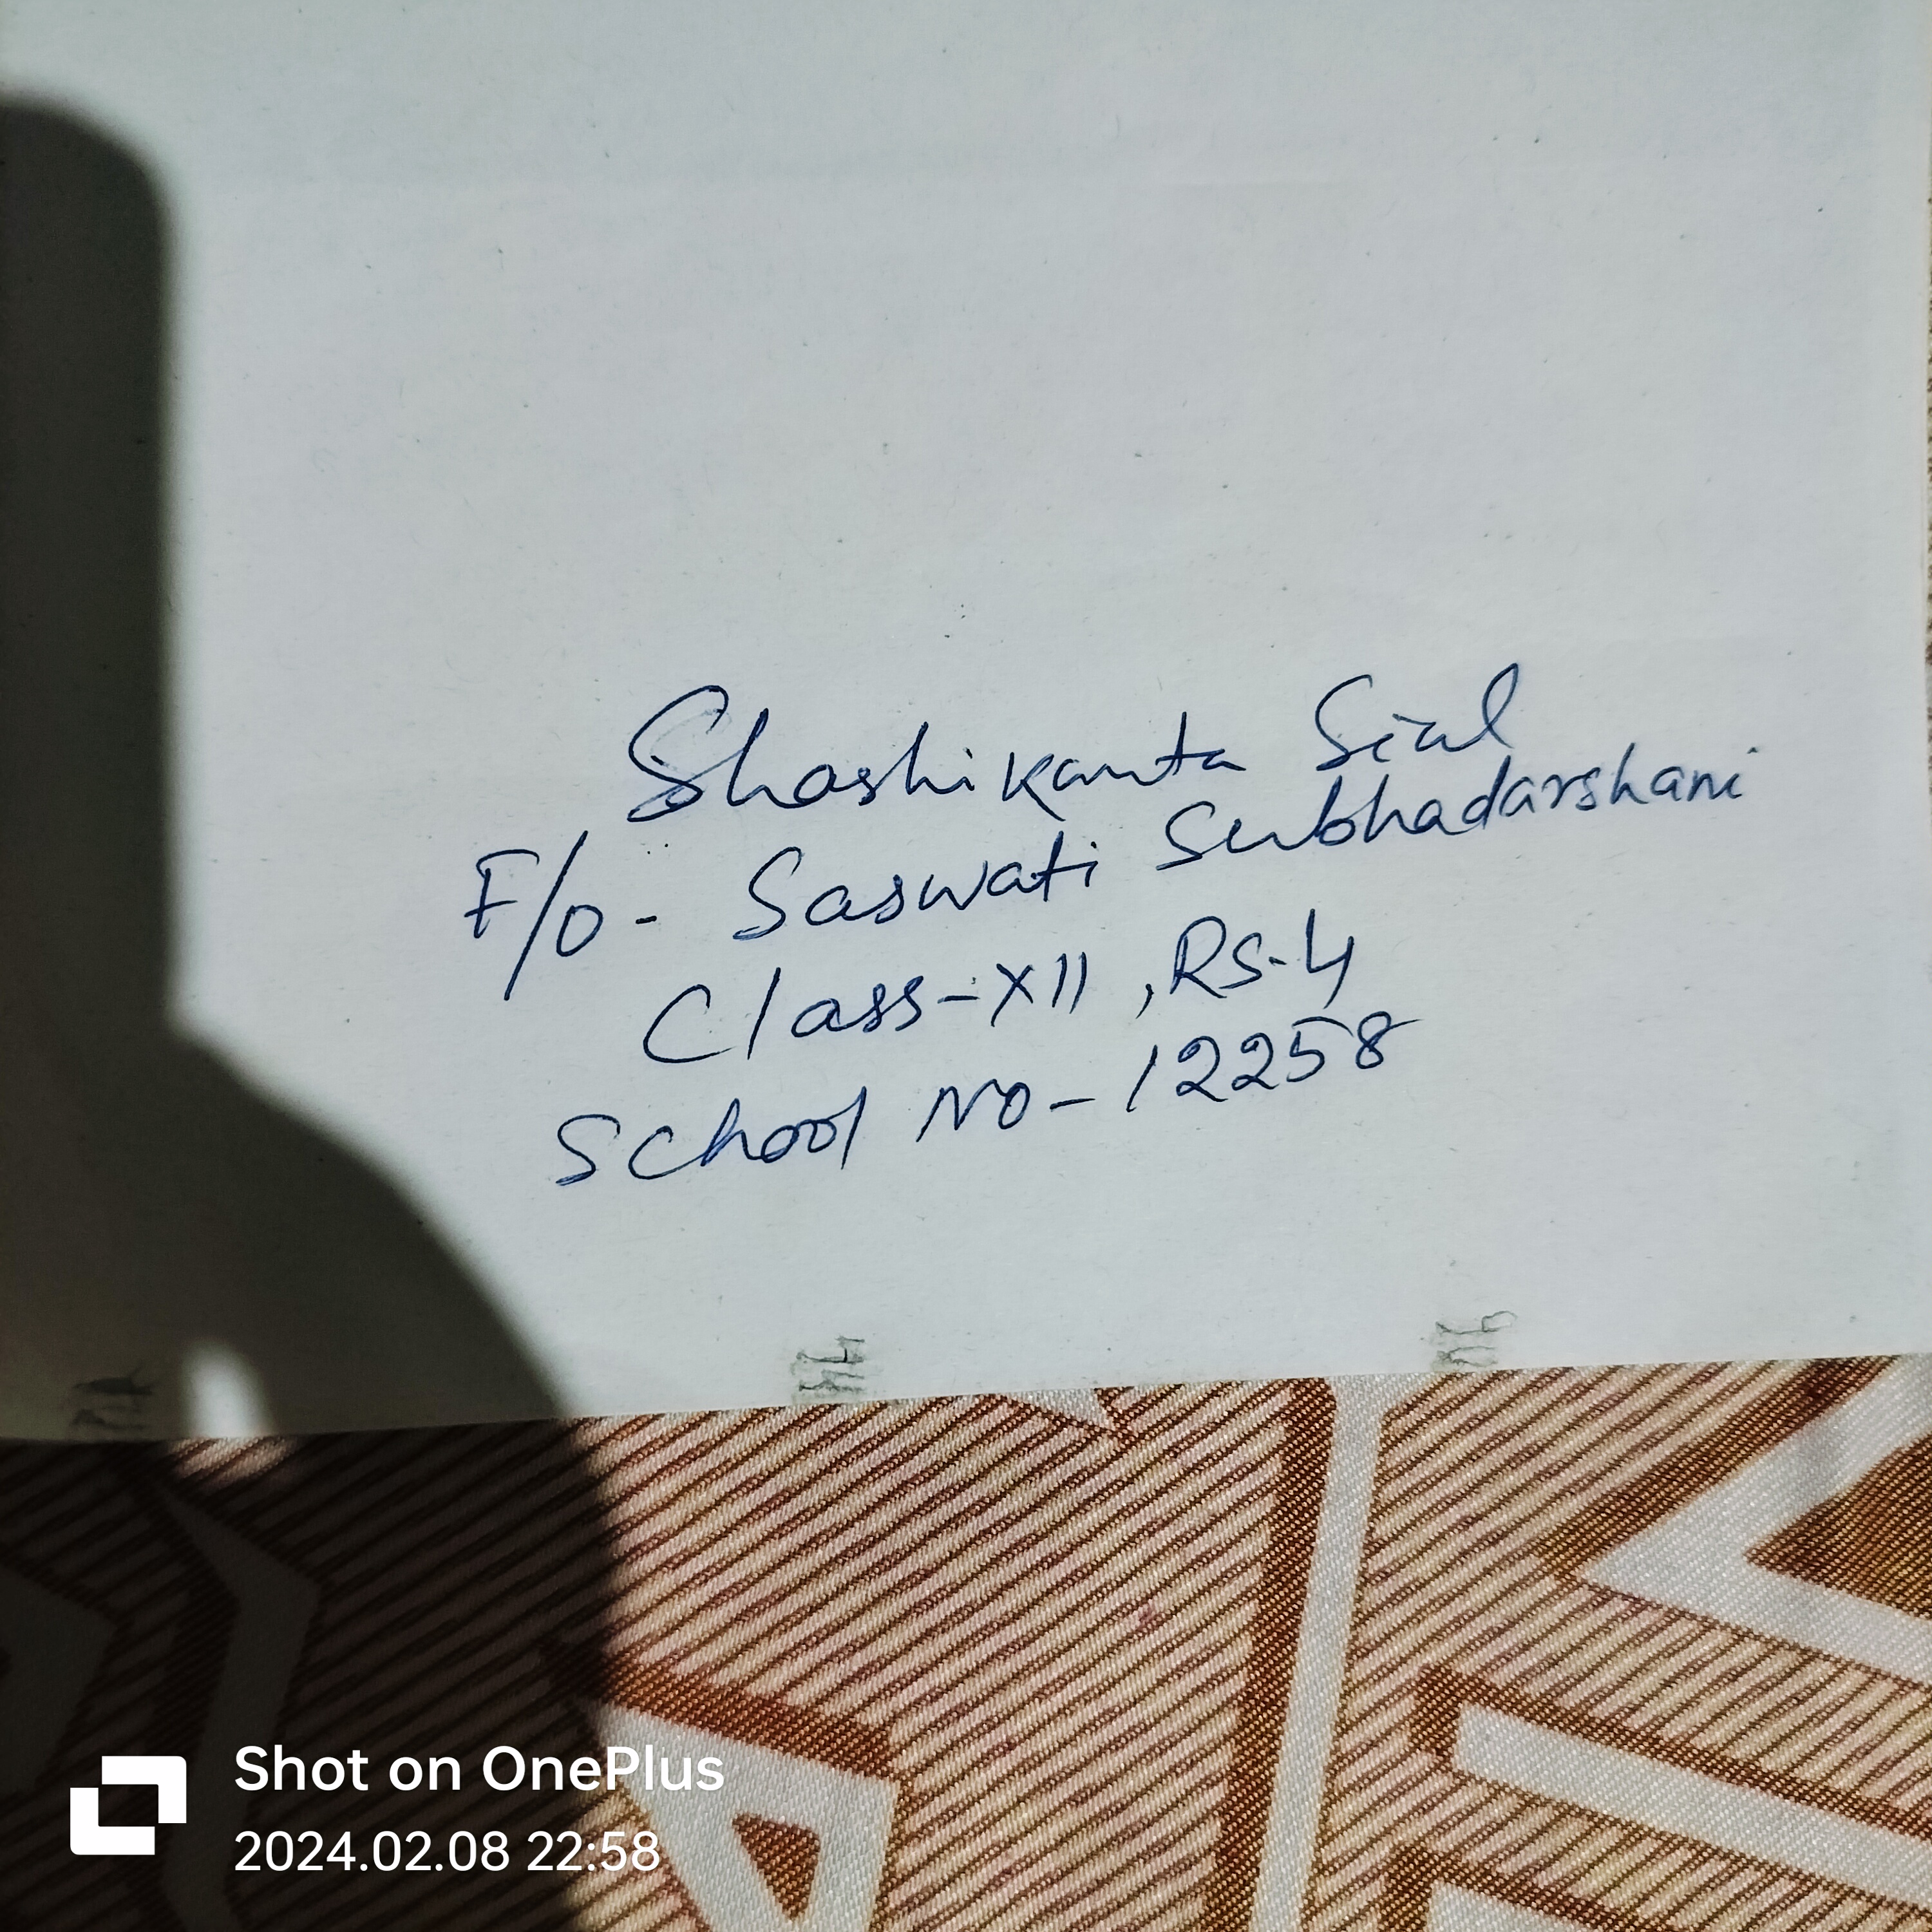 Shashikanta Sial
F/O- Saswati Subhadarshani
Class-XII, RS-4
School NO-12258
Shot on OnePlus
2024.02.08 22:58